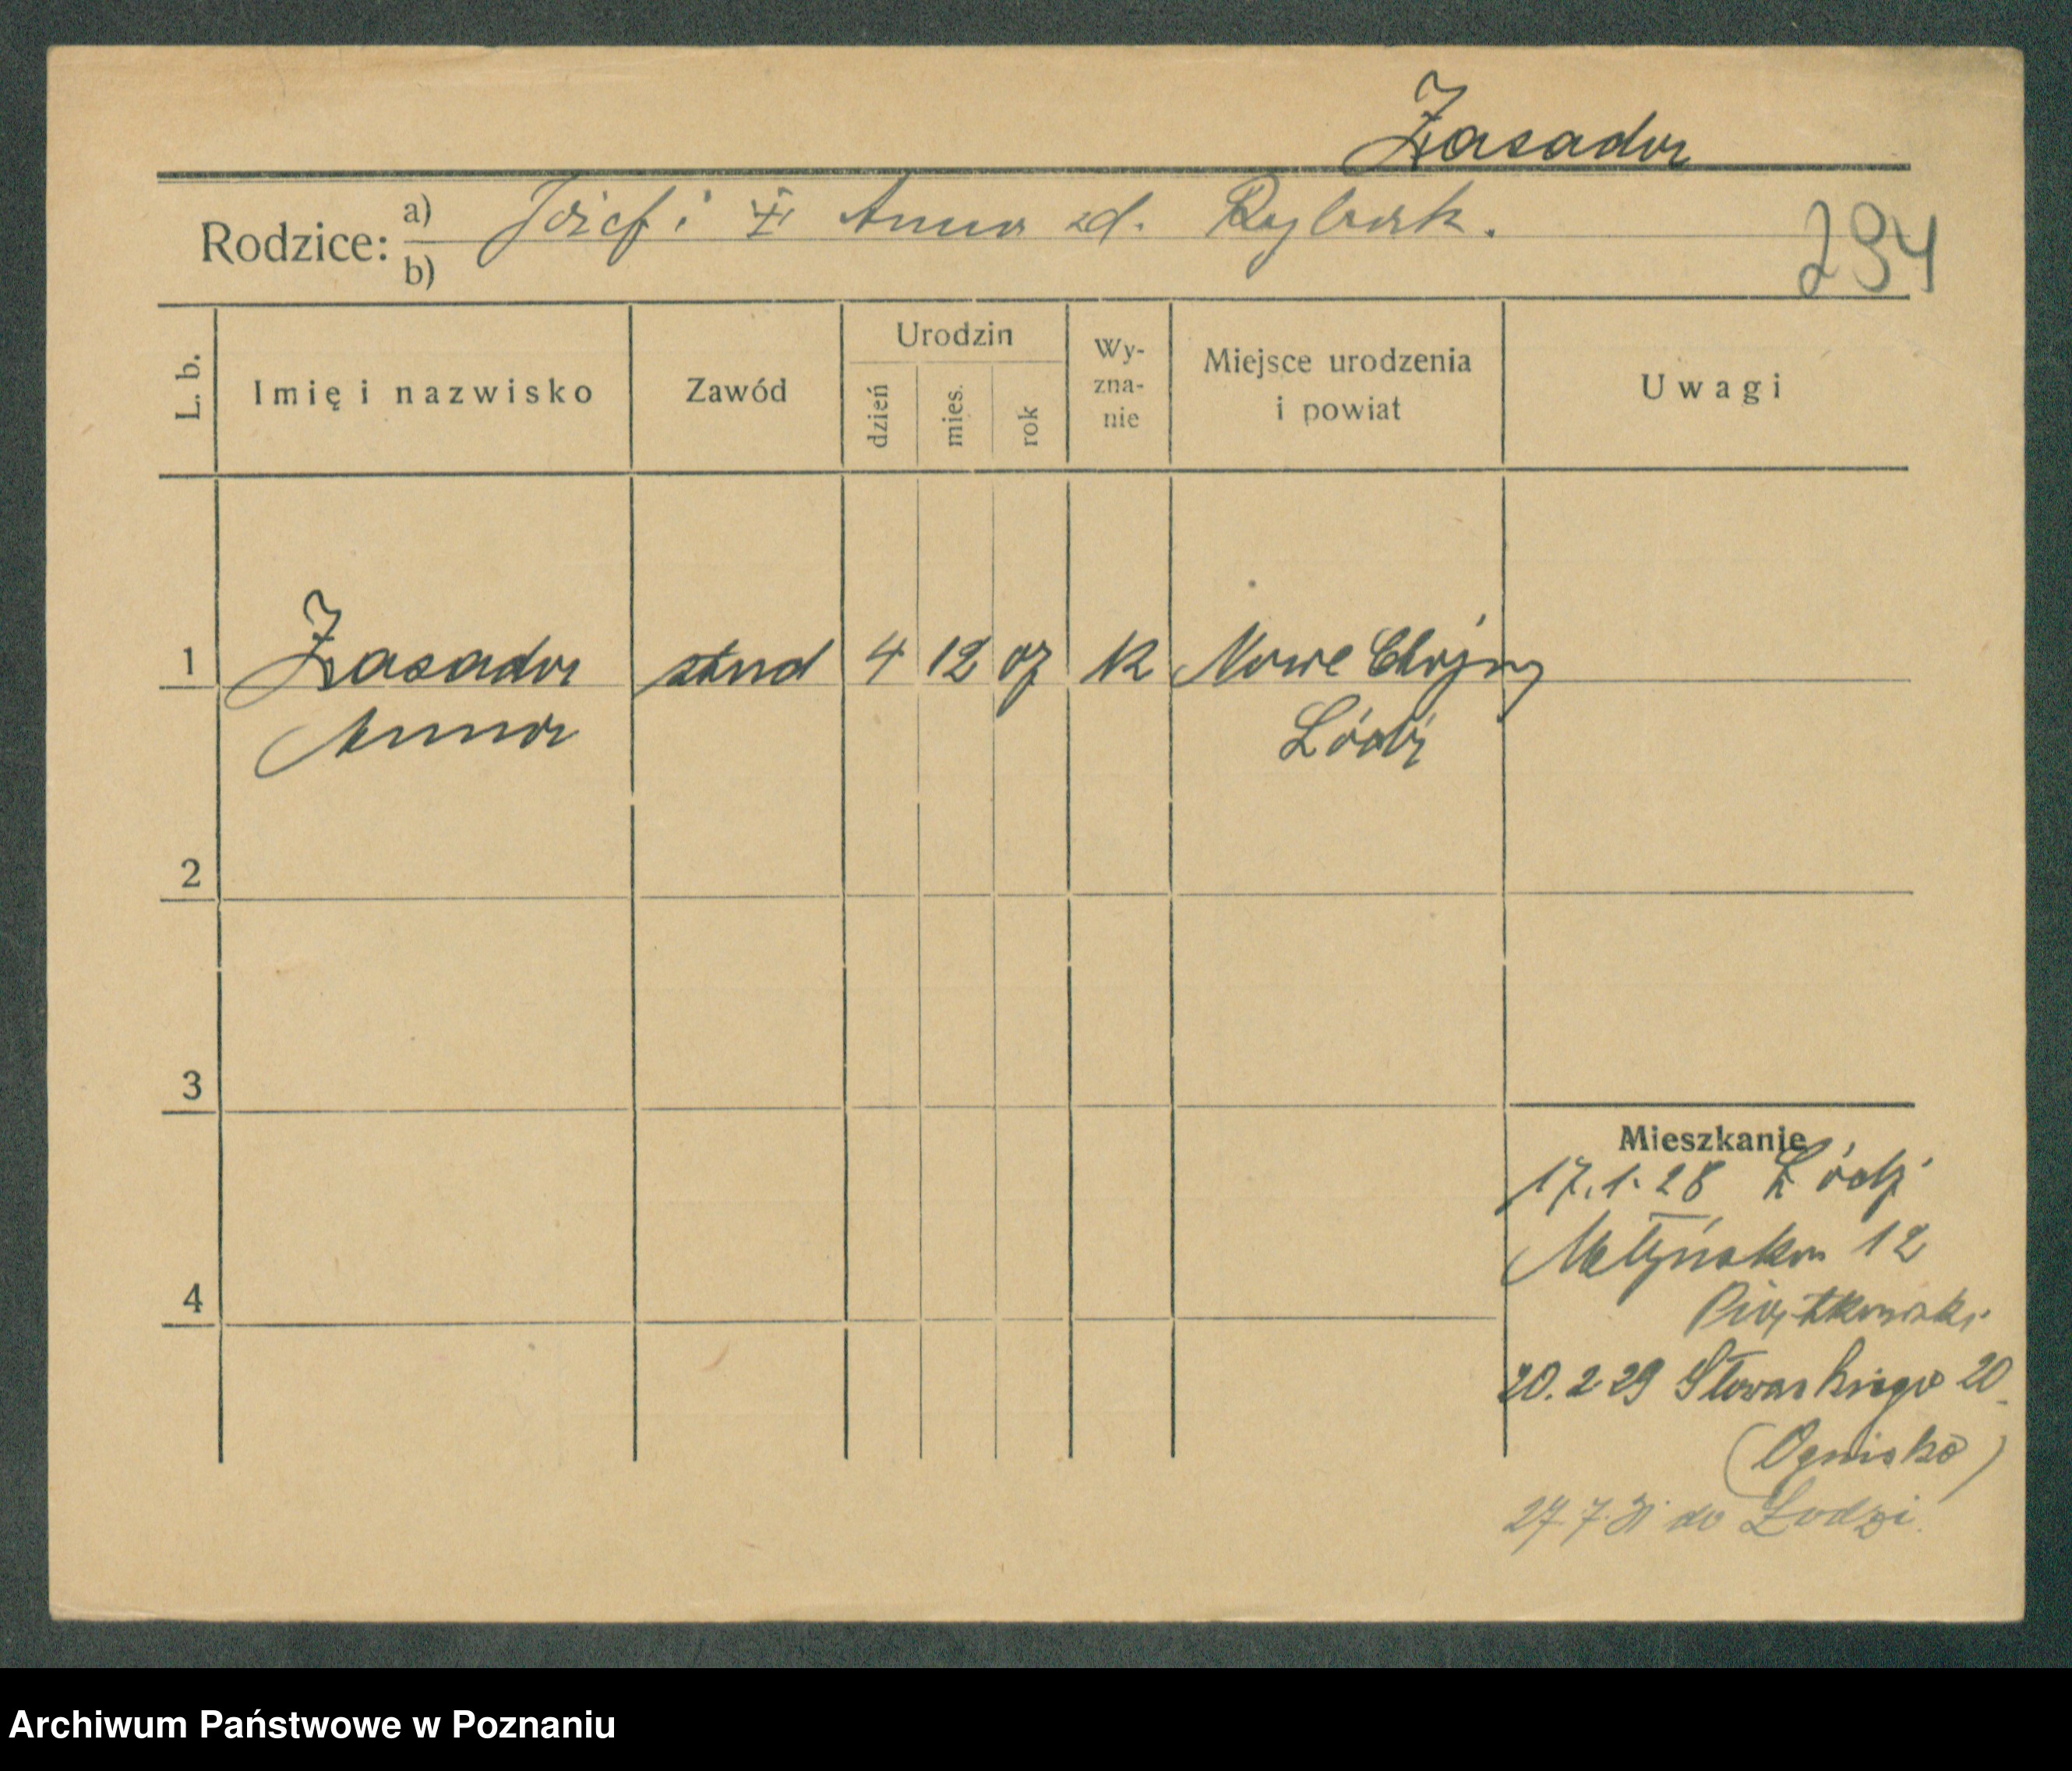 Zasada
Rodzice: a) Józef i Anna zd. Rybak.
b)
294
L. b.
Imię i nazwisko
Zawód
Urodzin
dzień
mies.
rok
Wy-
zna-
nie
Miejsce urodzenia
i powiat
Uwagi
1 Zasada stud 4 12 07 k Nowe Chojny
Anna Łódź
2
3
4
Mieszkanie
17.1.28 Łódź
Młyńska 12
Piątkowski
20.2 29 Słowackiego 20
(Ognisko)
27.7.31 do Łodzi.
Archiwum Państwowe w Poznaniu